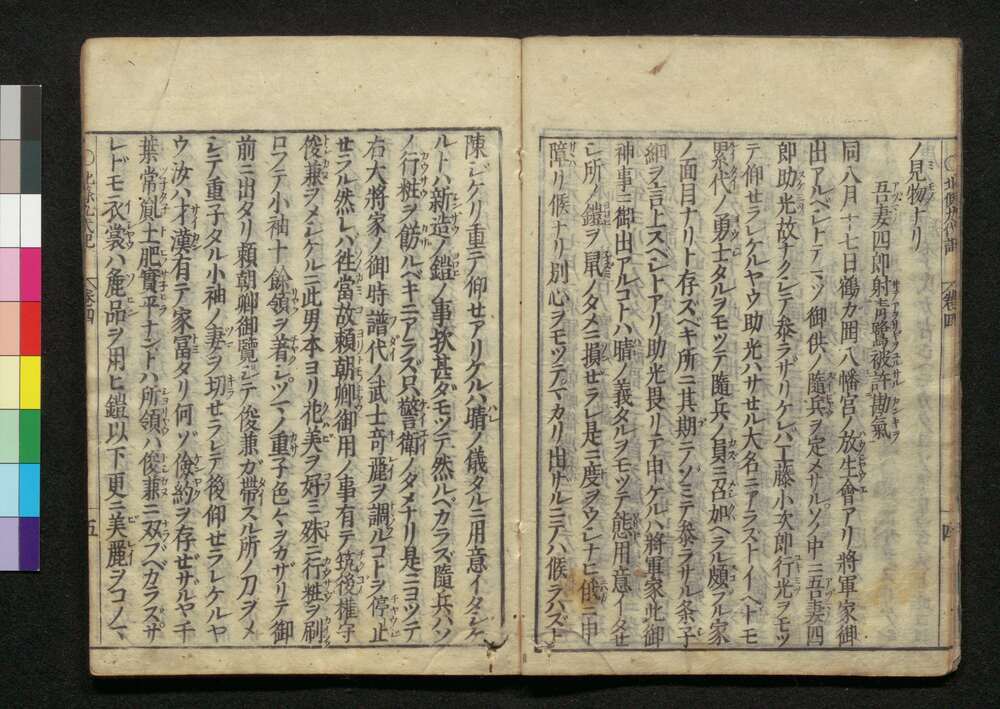 ノ見物ナリ
吾妻四郎射青鷺被許勘氣
同八月十七日鶴カ岡八幡宮ノ放生會アリ將軍家御
出アルベシトテマヅ御供ノ隨兵ヲ定メサルソノ中ニ吾妻四
郎助光故ナクシテ參ラザリケレハ工藤小次郎行光ヲモツ
テ仰セラレケルヤウ助光ハサセル大名ニアラストイヘトモ
累代ノ勇士タルヲモツテ隨兵ノ員ニ召加ヘラル頗フル家
ノ面目ナリト存ズベキ所ニ其期ニノゾミテ參ラサル条子
細ヲ言上スベシトアリ助光畏リテ申ケルハ將軍家此御
神事ニ御出アルコトハ晴ノ義タルヲモツテ態用意イタセ
シ所ノ鎧ヲ鼠ノタメニ損ゼラレ是ニ度ヲウシナヒ俄ニ申
障リ候ナリ別心ヲモツテマカリ出サルニテハ候ラハズト
北條九代記 卷四 四
陳シケリ重テ仰セアリケルハ晴ノ儀タルニ用意イタシケ
ルトハ新造ノ鎧ノ事欤甚ダモツテ然ルベカラズ隨兵ハソ
ノ行粧ヲ餝ルベキニアラズ只警衛ノタメナリ是ニヨツテ
右大將家ノ御時譜代ノ武士竒麗ヲ調ルコトヲ停止
せラル然レハ往當故頼朝卿御用ノ事有テ筑後權守
俊兼ヲメシケルニ此男本ヨリ花美ヲ好ミ殊ニ行粧ヲ刷
ロフテ小袖十餘領ヲ着シヅマノ重子色々ヲカザリテ御
前ニ出タリ頼朝卿御覽シテ俊兼ガ帶スル所ノ刀ヲメ
シテ重子タル小袖ノ妻ヲ切セラレテ後仰セラレケルヤ
ウ汝ハ才漢有テ家冨タリ何ゾ儉約ヲ存ゼザルヤ千
葉常胤土肥實平ナントハ所領ハ俊兼ニ双ブベカラスサ
レドモ衣裳ハ麁品ヲ用ヒ鎧以下更ニ美麗ヲコノマ
北條九代記 卷四 五